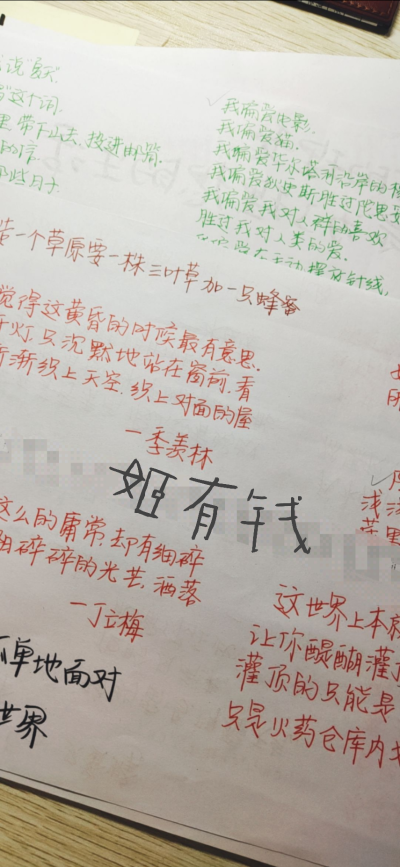 说"夏天"
这个词
里,带下山去,投进邮箱.
的信.
那些日子.
我偏爱电影.
我偏爱猫.
我偏爱华尔塔河沿岸的橡
我偏爱狄更斯胜过陀思妥
我偏爱我对人群的喜欢
胜过我对人类的爱.
我偏爱在手边摆放针线,
造一个草原要一株三叶草加一只蜂蜜
觉得这黄昏的时候最有意思.
开灯,只沉默地站在窗前,看
渐渐织上天空,织上对面的屋
一季羡林
姬有钱
这么的庸常,却有细碎
细碎碎的光芒,洒落
一丁立梅
孤单地面对
世界
浅
这世界上本就
让你醍醐灌顶
灌顶的只能是
只是火药仓库内